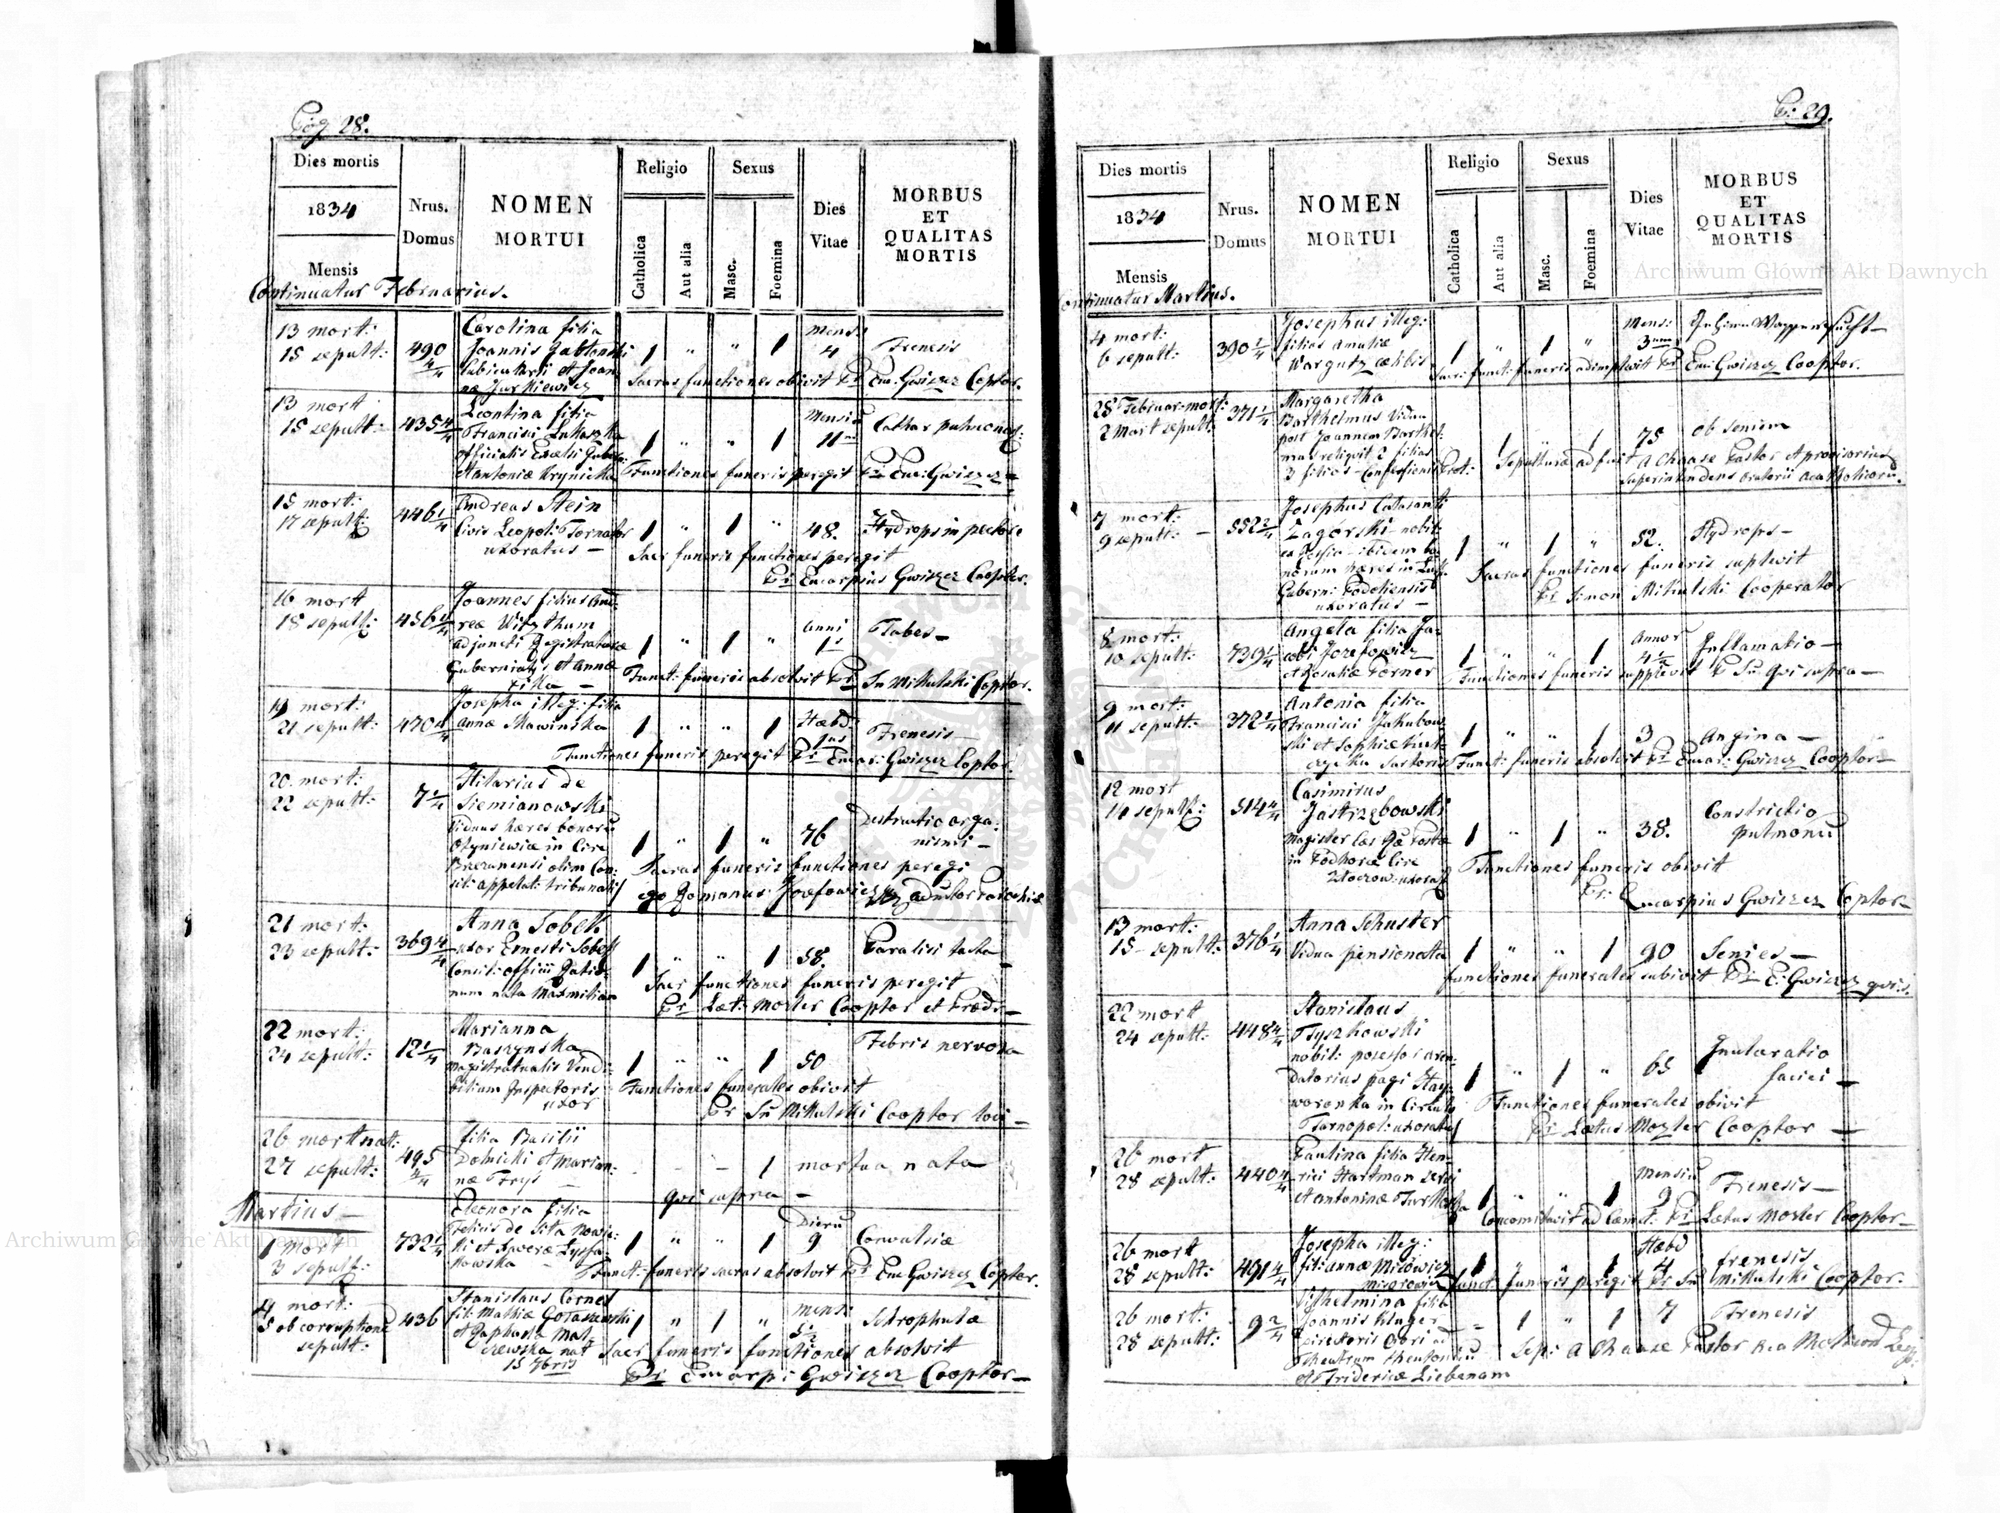 Pag 28.
Dies mortis
1834
Mensis
Nrus.
Domus
NOMEN
MORTUI
Religio
Catholica
Aut alia
Sexus
Masc.
Foemina
Dies
Vitae
MORBUS
ET
QUALITAS
MORTIS
Continuatur Februarius.
13 mort:
15 sepult:
490 4/4
Carolina filia
Joannis Jablonski
Cubicularii et Joan-
næ Jurkiewicz
1 " " 1
Mens:
4
Frenesis
Sacras functiones obivit Pr Euc: Gwizez Coptor.
13 mort
15 sepult:
435 4/4
Leontina filia
Francisci Lukaszka
officialis Excelsi Guber:
et Antoniæ Krynicka
1 " " 1
Mensiu
11
Cathar pulmonal:
Functiones funeris peregit Pr Euc: Gwizez
15 mort:
17 sepult:
446 1/4
Andreas Stein
Civis Leopoli: Tornator
uxoratus —
1 " 1 "
48.
Hydrops in pectore
Sacr funeris functiones peregit
Pr Eucarpius Gwizez Cooptor.
16 mort
18 sepult:
456 4/4
Joannes filius And-
reæ Witzthum
adjuncti Registraturæ
Gubernialis et Annæ
1 " 1 "
Anni
1
Tabes —
Funct: funeris absolvit Pr Sn Mikulski Coptor.
19 mort:
21 sepult:
470 4/4
Josepha illeg: filia
Annæ Skawinska
1 " " 1
Hebd
Frenesis —
Functiones funeris peregit Pr Eucar: Gwizez Coptor.
20 mort:
22 sepult:
7 1/4
Hilarius de
Siemianowski
Viduus hæres bonoru
Otyniewiæ in Circ
Brzezanensi olim Con-
sili: appellat: tribunalis
1 " 1 "
76
Destructio orga-
nismi —
Sacras funeris functiones peregi
ego Romanus Jozefowicz
21 mort:
23 sepult:
369 4/4
Anna Sobell
uxor Ernesti Sobell
Consil: officii Ratio-
num nata Maxmilian
1 " " 1
58.
Paralisi tacta
Sacr functiones funeris peregit
Pr Læt: Mosler Cooptor et Præd: —
22 mort:
24 sepult:
12 1/4
Marianna
Buszynska
magistratualis Vendi-
bilium Inspectoris
uxor
1 " " 1
50
Febris nervosa
Functiones funerales obivit
Pr Sn Mikulski Cooptor loci —
26 mort nat:
27 sepult:
495 3/4
filia Basilii
Dolnicki et Marian-
næ Frys —
- - - 1
mortua nata
qui supra —
Martius —
1 mort
3 sepult:
732 1/4
Eleonora filia
Felicis de Sita Nowic-
ki et Xaveræ Lyssa-
kowska —
1 " " 1
Dieru
9
Convulsiæ
Funct: funeris sacras absolvit Pr Euc Gwizez Coptor.
4 mort:
5 ob corruptione
sepult:
436
Stanislaus Cornel
fil: Mathiæ Gotaszewski
1 " 1 "
Mens:
5 1/2
Schrophulæ
Sacr funeris functiones absolvit
Pr Eucarp: Gwizez Cooptor —
P: 29.
Dies mortis
1834
Mensis
Nrus.
Domus
NOMEN
MORTUI
Religio
Catholica
Aut alia
Sexus
Masc.
Foemina
Dies
Vitae
MORBUS
ET
QUALITAS
MORTIS
Continuatur Martius.
4 mort:
6 sepult:
390 1/4
Josephus illeg:
filius Amaliæ
Wargutz cælibis
1 " 1 "
Mens:
3
Gehirn Wassersucht —
Sacr: funct: funeris adimplevit Pr Euc: Gwizez Cooptor.
28 Februar: mort:
2 Mart sepult:
371 1/4
Margaretha
Barthelmus Vidua
post Joannem Barthel-
mus reliquit 2 filias
3 filios — Confessionis Prot:
1 " 1
75
ob senium
Sepulturæ adfuit A Chaase Pastor et provisorius
Superintendens oratorii Acatholicoru.
7 mort:
9 sepult: —
552 2/4
Josephus Calasanti
Zagorski nobil:
norum hæres in
Guberni: Podoliensis
uxoratus —
1 " 1 "
52.
Hydrops —
Sacras functiones funeris suplevit
Pr Simon Mikulski Cooperator
8 mort:
10 sepult:
739 1/4
Angela filia Ja-
cobi Jozefowicz
et Rosaliæ Forner
1 " " 1
Annor
4 1/2
Inflamatio —
Functiones funeris supplevit P Sn qui supra —
9 mort:
11 sepult:
372 1/4
Antonia filia
Francisci Jakubow-
ski et Sophiæ
1 " " 1
3
Angina —
Funct: funeris absolvit Pr Eucar: Gwizez Cooptor —
12 mort
14 sepult:
514 4/4
Casimirus
Jastrzębowski
Magister
in Podhorce Circ
Zloczow: uxorat
1 " 1 "
38.
Constrictio
pulmonu
Functiones funeris obivit
Pr: Eucarpius Gwizez Coptor —
13 mort:
15 — sepult:
376 1/4
Anna Schuster
Vidua pensionata
1 " " 1
90
Senies —
functiones funerales subivit Pr E: Gwizez qui s.
22 mort
24 sepult:
448 4/4
Stanislaus
Tyszkowski
nobil: posessor aren-
datorius pagi Hay-
woronka in Circulo
Tarnopol: uxoratus
1 " 1 "
65
Exulceratio
faciei —
Functiones funerales obivit
Pr Lætus Mosler Cooptor —
26 mort
28 sepult:
440 4/4
Paulina filia Hen-
rici Hartman servi
et Antoninæ Turkowska
1 " " 1
Mensiu
9
Frenesis —
Concomitavit ad Cæmet: Pr Lætus Mosler Cooptor —
26 mort
28 sepult:
491 4/4
Josepha illeg:
fil: Annæ Milowicz
1 " " 1
Hebd
4
frenesis
funct: funeris peregit Pr Sn Mikulski Cooptor.
26 mort:
28 sepult:
9 2/4
Wilhelmina filia
Joannis Kluger
Directoris Chori ad
Theatrum Theutonicu
et Fridericæ Liebenam
- 1 " 1
7
Frenesis
Sepe: A Chaase Pastor
Archiwum Główne Akt Dawnych
Archiwum Główne Akt Dawnych
ARCHIWUM GŁÓWNE AKT DAWNYCH